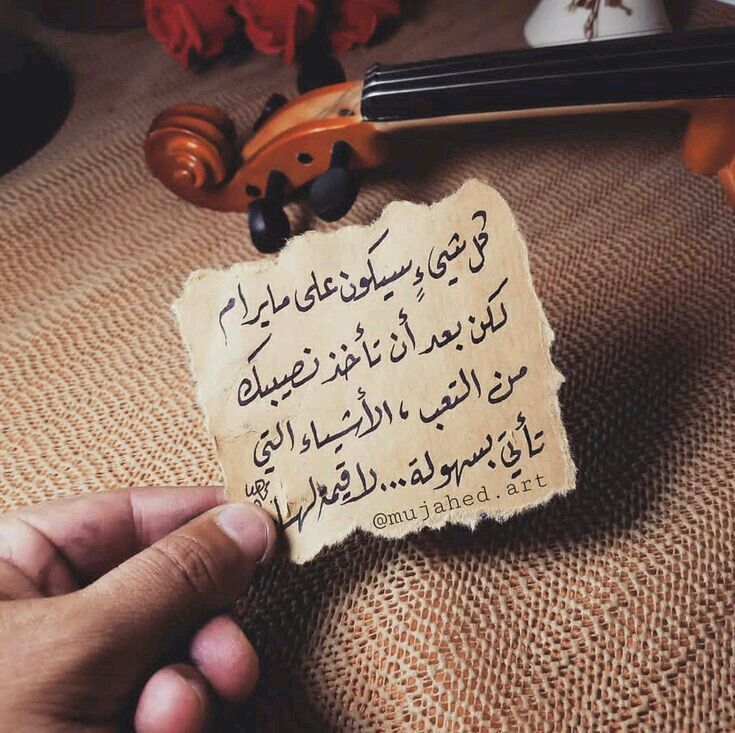 كل شيءٍ سيكون على مايرام
لكن بعد أن تأخذ نصيبك
من التعب ، الأشياء التي
تأتي بسهولة ... لا قيمة لها
@mujahed.art